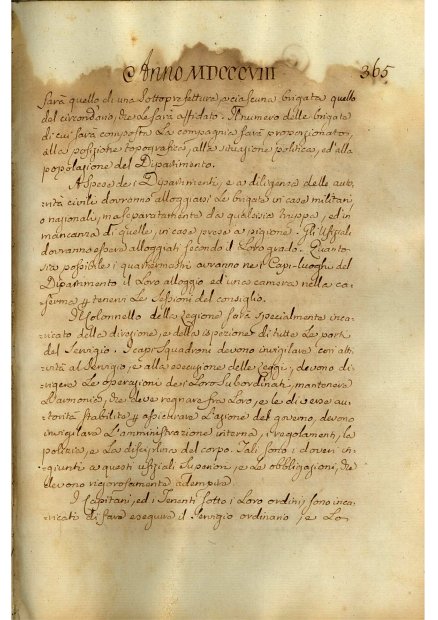 Anno MDCCCVIII 365
sarà quello di una Sottoprefettura, e ciascuna brigata quello
del circondario, che sarà affidato. Il numero delle brigate
di cui sarà composta la compagnia sarà proporzionato,
alla posizione topografica, alla situazione politica, ed alla
popolazione del Dipartimento.
A spese dei Dipartimenti, e a diligenza delle auto,,
rità civili dovranno alloggiarsi le brigate in case militari,
o nazionali, ma separatamente da qualsisia truppa, ed in
mancanza di quelle, in case prese a pigione. Gli Uffiziali
dovranno essere alloggiati secondo il Loro grado. Quanto
sia possibile i quartiermastri avranno nei Capi-luoghi del
Dipartimento il Loro alloggio ed una camera nella ca,,
serma per tenervi le Sessioni del consiglio.
Il Colonnello della Legione sarà specialmente inca,,
ricato della direzione, e della ispezione di tutte le parti
del Servigio. I capi Squadroni devono invigilare con atti,,
vità al Servigio, e alla esecuzione delle leggi, devono di,,
rigere le operazioni dei Loro Subordinati, mantenere
L'armonia, che deve regnare fra Loro, e le diverse au,,
torità stabilite per assicurare L'azione del governo, devono
invigilare L'amministrazione interna, i regolamenti, la
polizia, e La disciplina del corpo. Tali sono i doveri in,,
giunti a questi uffiziali Superiori, e Le obbligazioni, che
devono rigorosamente adempire.
I Capitani, ed i Tenenti sotto i Loro ordini, sono inca,,
ricati di fare eseguire il Servigio ordinario, e Lo